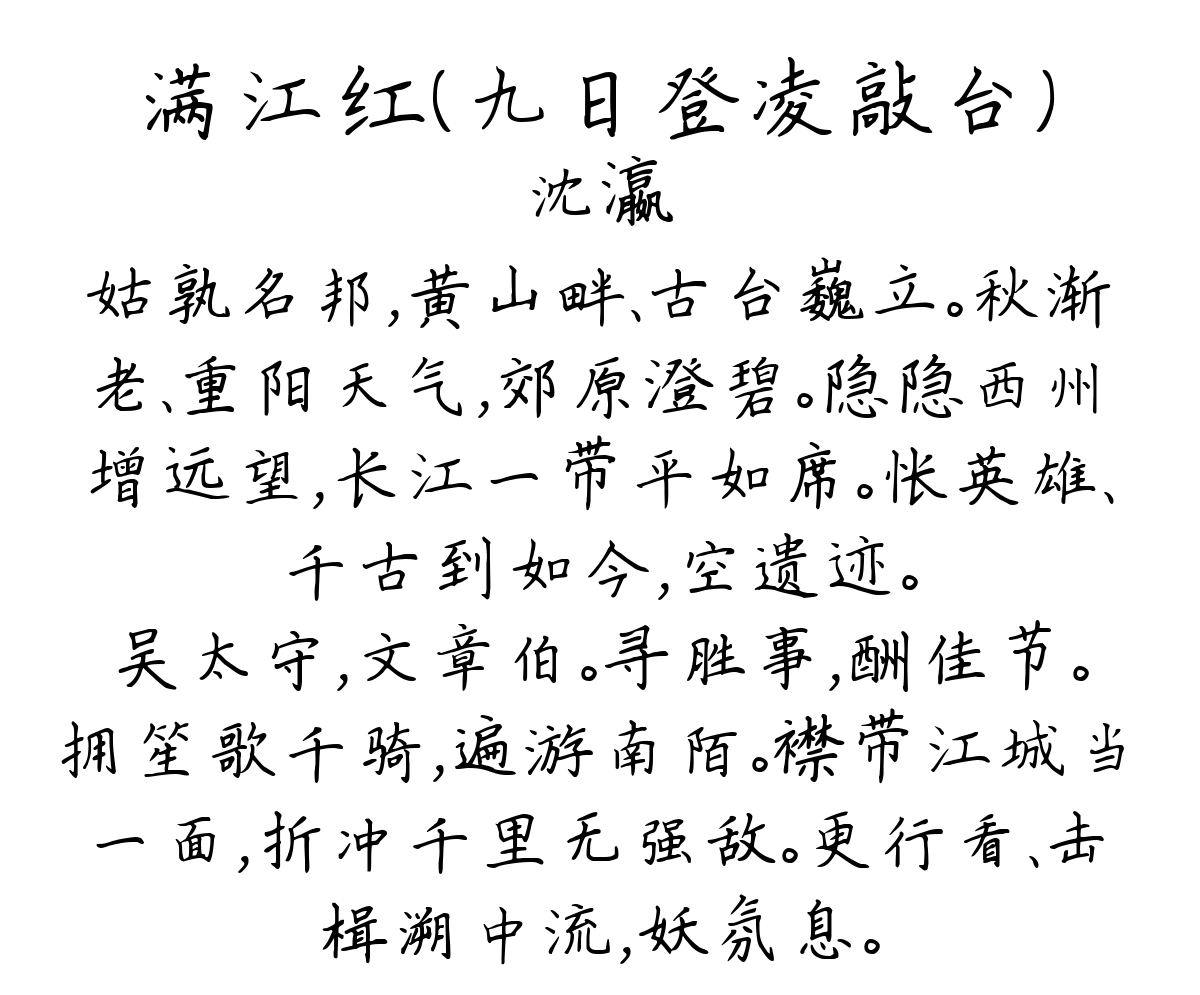 满江红(九日登凌敲台)
沈瀛
姑孰名邦,黄山畔、古台巍立。秋渐
老、重阳天气,郊原澄碧。隐隐西州
增远望,长江一带平如席。怅英雄、
千古到如今,空遗迹。
吴太守,文章伯。寻胜事,酬佳节。
拥笙歌千骑,遍游南陌。襟带江城当
一面,折冲千里无强敌。更行看、击
楫溯中流,妖氛息。